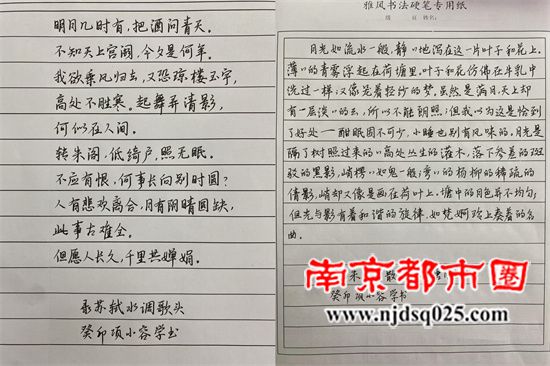 明月几时有,把酒问青天。
不知天上宫阙,今夕是何年。
我欲乘风归去,又恐琼楼玉宇,
高处不胜寒。起舞弄清影,
何似在人间。
转朱阁,低绮户,照无眠。
不应有恨,何事长向别时圆?
人有悲欢离合,月有阴晴圆缺,
此事古难全。
但愿人长久,千里共婵娟。
录苏轼水调歌头
癸卯项小容学书
雅风书法硬笔专用纸
姓名:
月光如流水一般,静静地泻在这一片叶子和花上。
薄薄的青雾浮起在荷塘里。叶子和花仿佛在牛乳中
洗过一样;又像笼着轻纱的梦。虽然是满月,天上却
有一层淡淡的云,所以不能朗照;但我以为这是恰到
了好处—酣眠固不可少,小睡也别有风味的。月光是
隔了树照过来的,高处丛生的灌木,落下参差的斑
驳的黑影,峭楞楞如鬼一般;弯弯的杨柳的稀疏的
倩影,却又像是画在荷叶上。塘中的月色并不均匀;
但光与影有着和谐的旋律,如梵婀玲上奏着的名
曲。
朱 散
癸卯项小容学书
南京都市圈
www.njdsq025.com